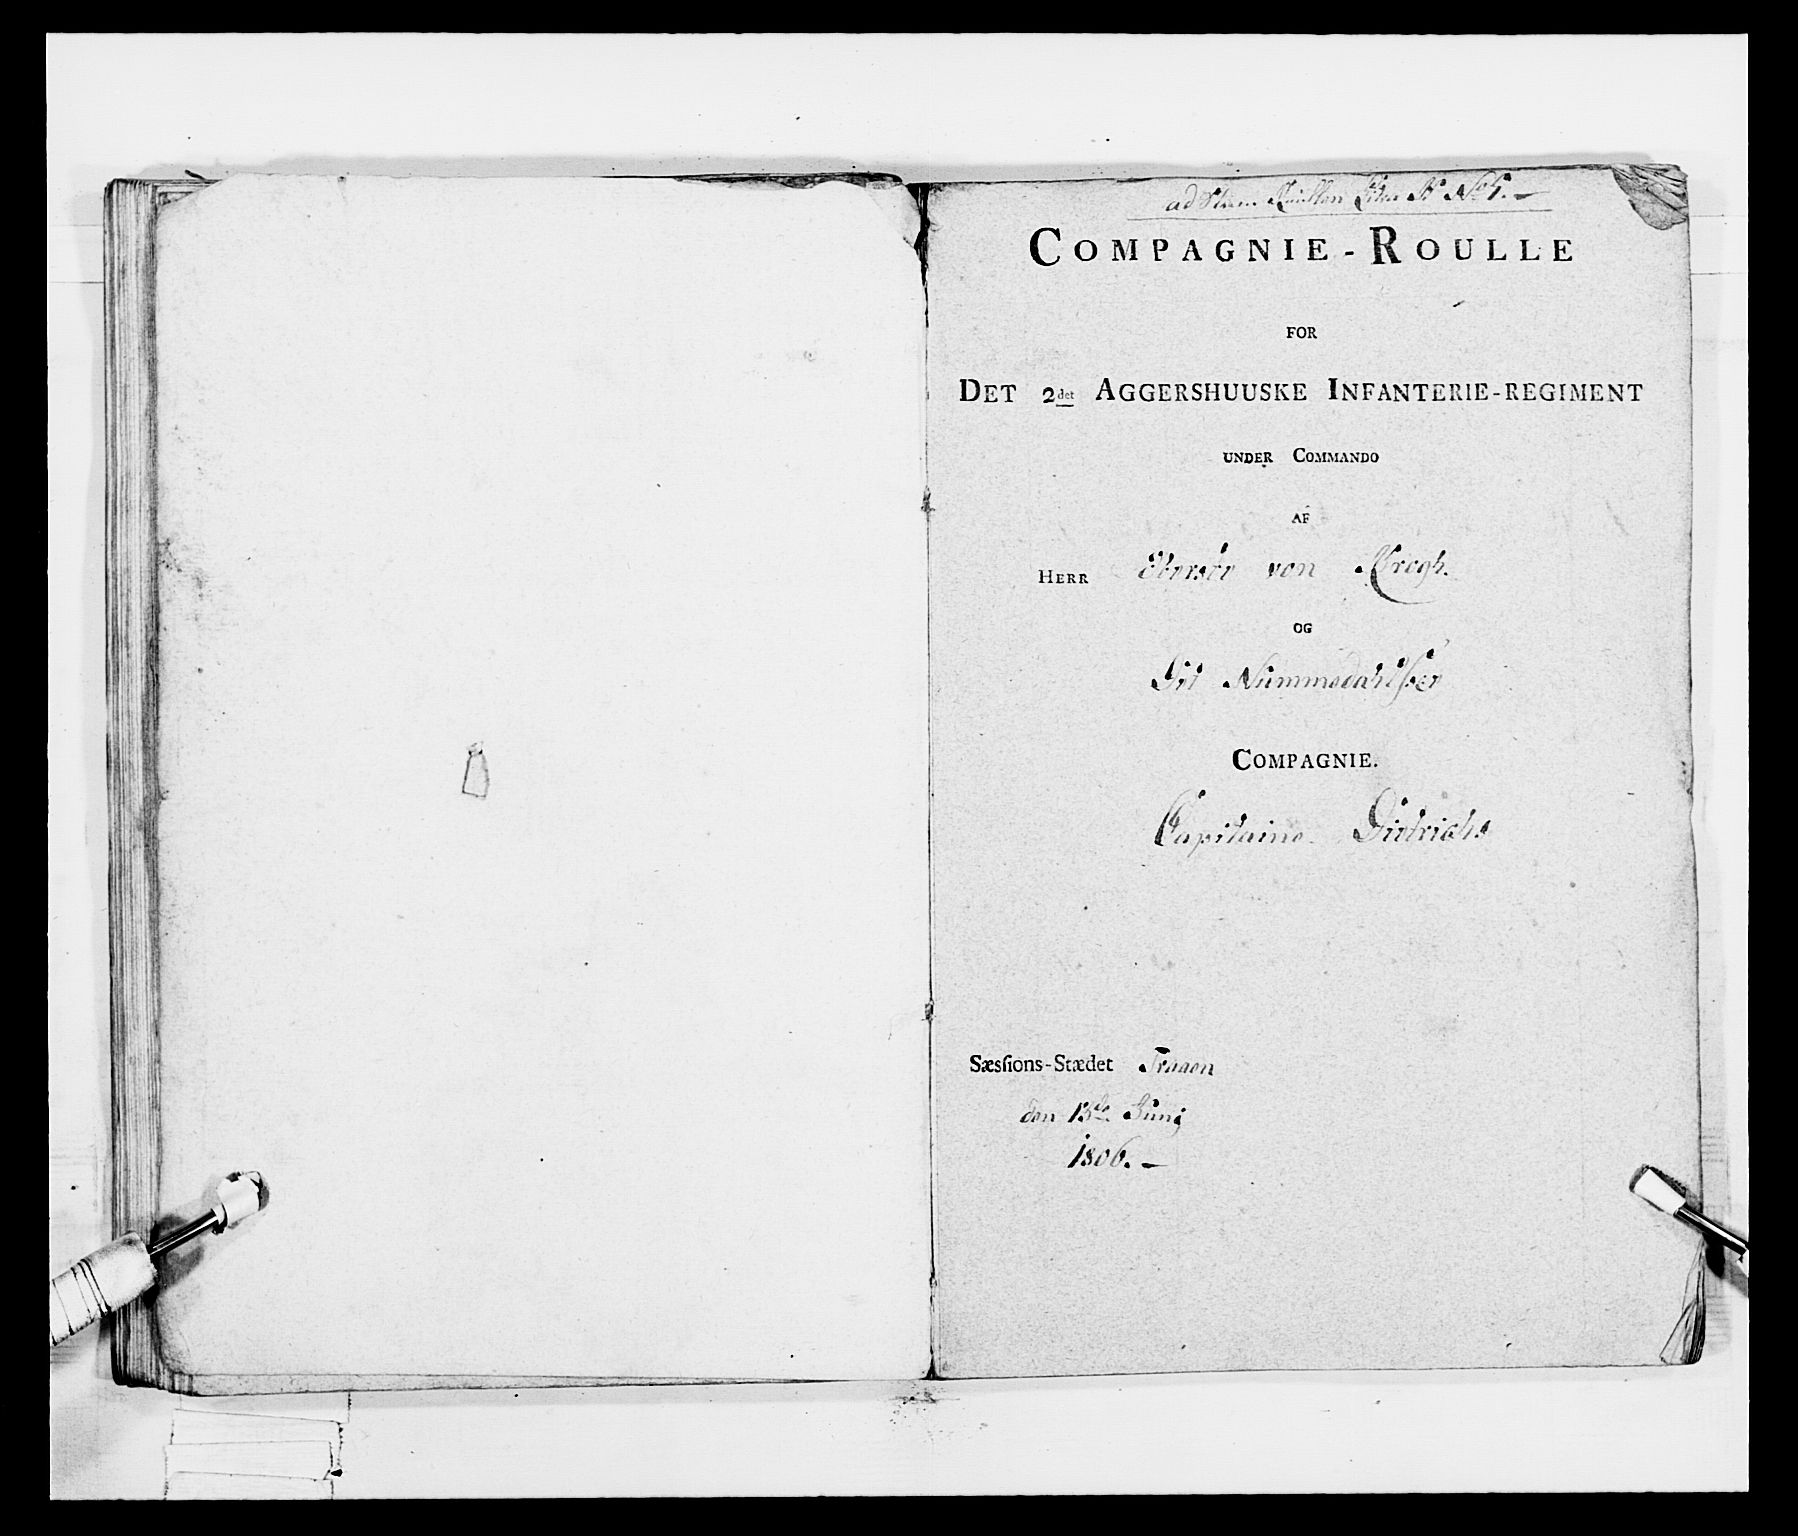 ad No 4. —
COMPAGNIE-ROULLE
FOR
DET 2det AGGERSHUUSKE INFANTERIE-REGIMENT
UNDER COMMANDO
AF
HERR Obersør von Krogh.
OG
Dit Nummedahlsker
COMPAGNIE.
Capitaine Ditrichs
Sæsſions-Stædet Traaen
den 13de Junj
1806. —